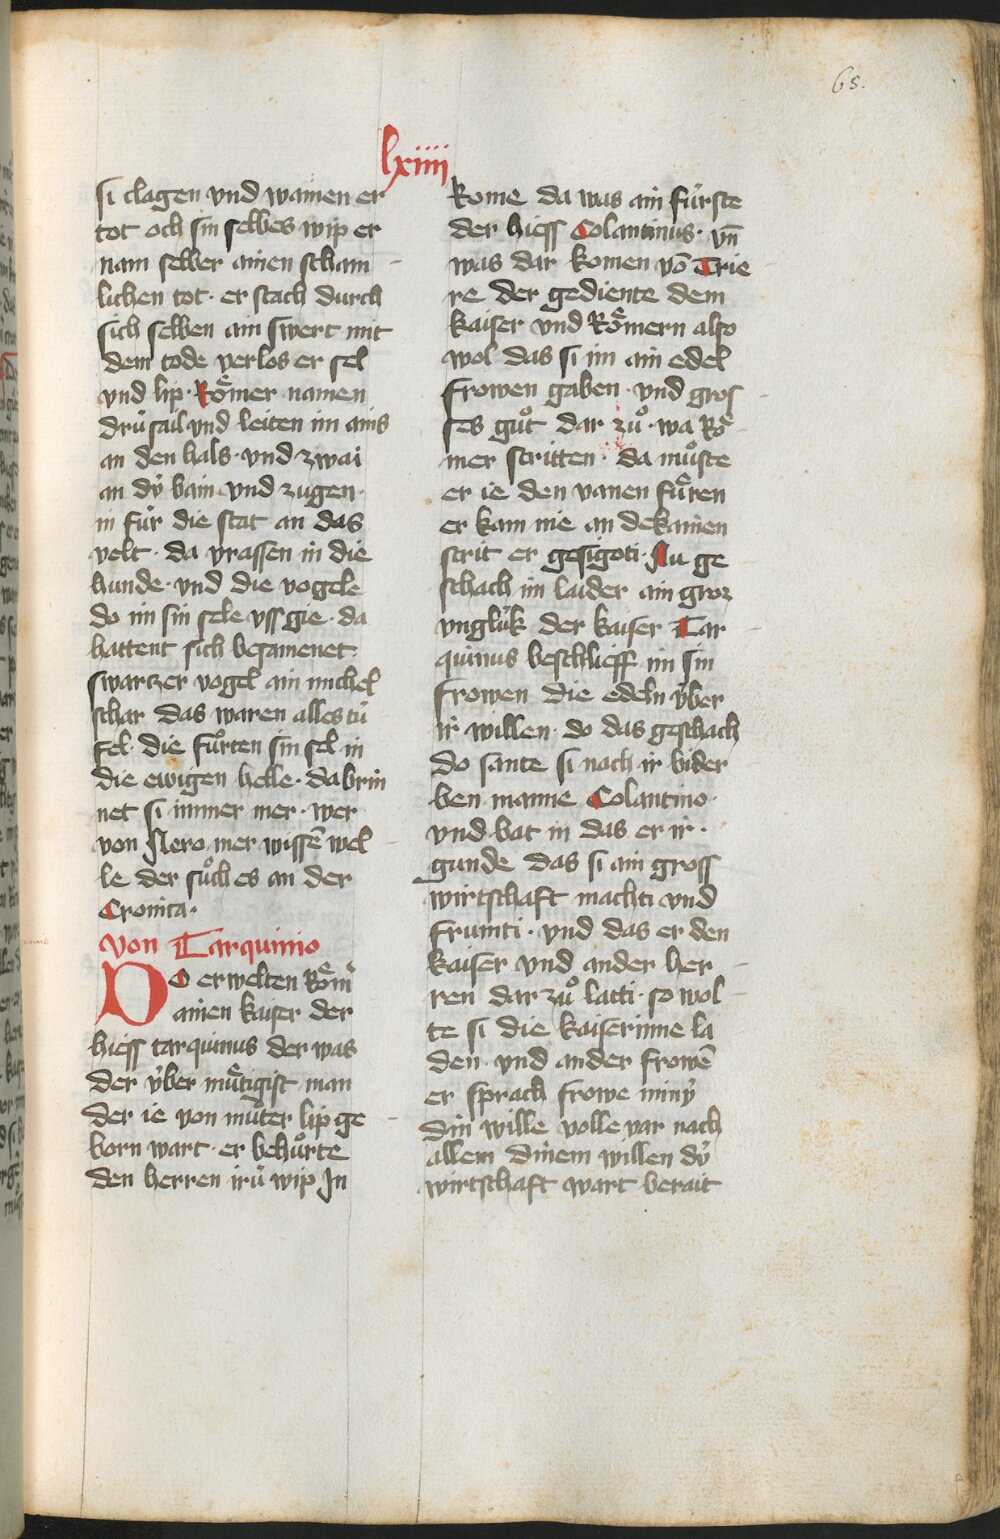 65.
lxiiii
si clagen vnd wainen er
tot och sin selbes wip er
nam selber ainen scham
lichen tot · er stach durch
sich selben ain swert mit
dem tode verlos er sel
vnd lip · Roͤmer namen
drü sail vnd leiten im ains
an den hals · vnd zwai
an dÿ bain vnd zugen ·
in für die stat an das
velt · da vrassen in die
hunde · vnd die vogele
do im sin sele vss gie · da
hattent sich besamenet
swartzer vogel ain michel
schar das waren alles tü
fel · die fuͦrten sin sel in
die ewigen helle · da brin
net si immer mer · wer
von Nero mer wissē wel
le der suͦch es an der
Cronica ·
von Tarquinio
DO er welten Roͤm
ainen kaiser der
hiess tarquinus der was
der ÿber muͤtigist man
der ie von muͦter lip ge
born wart · er behuͦrte
den herren irü wip In
Rome da was ain fürste
der hiess Colantinus · vn̄
was dar komen vō Trie
re der gediente dem
kaiser vnd Roͤmern also
wol das si im ain edel
frowen gaben · vnd gros
ses guͦt dar zuͦ · wa Roͤ
mer stritten · da muͦste
er ie den vanen fuͤren
er kam nie an dekainen
strit er gesigoti · Nu ge
schach im laider ain groz
vnglük der kaiser Tar
quinus beschlieff im sin
frowen die edeln ÿber
ir willen · do das geschach
do sante si nach ir bider
ben manne Colantino ·
vnd bat in das er ir ·
gunde das si ain gross
wirtschaft machti vnd
frumti · vnd das er den
kaiser vnd ander her
ren dar zuͦ latti · so wol
te si die kaiserinne la
den · vnd ander frowē
er sprach frowe minÿ
din wille volle var nach
allem dinem willen dÿ
wirtschaft wart berait